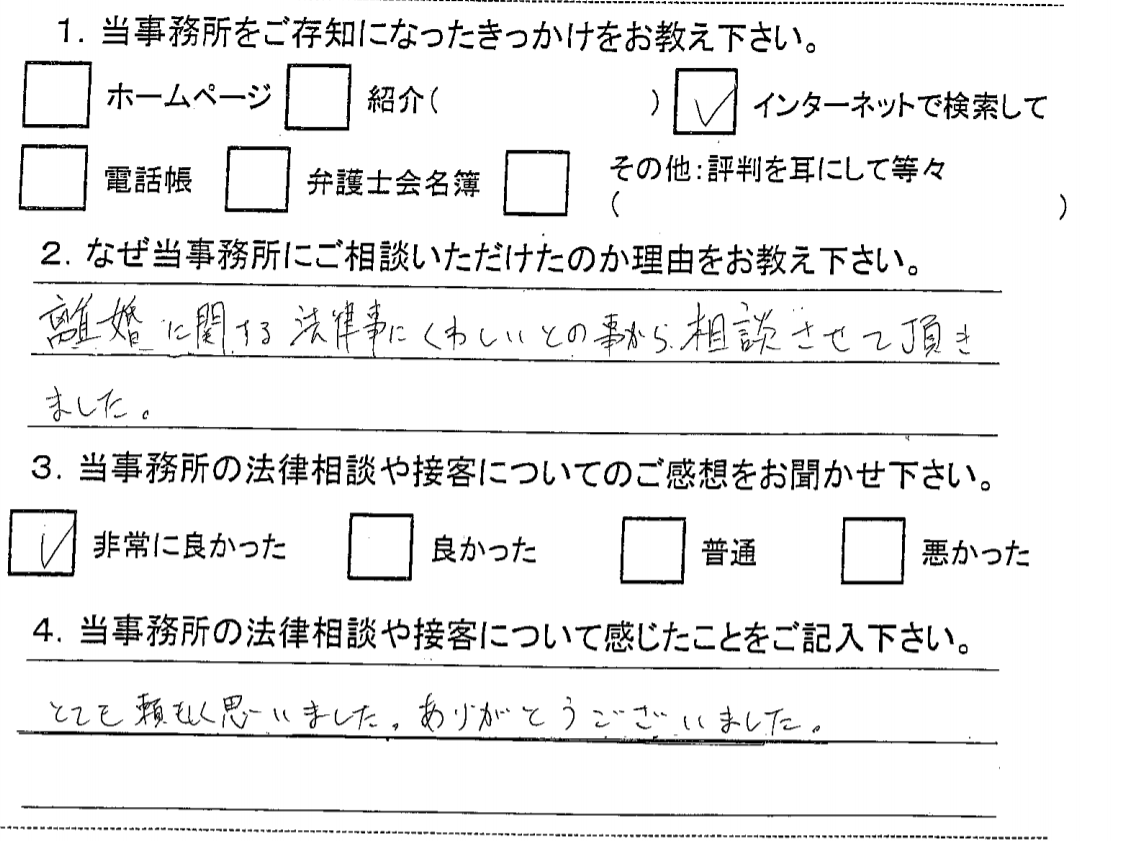 1. 当事務所をご存知になったきっかけをお教え下さい。
□ ホームページ □ 紹介( ) ☑ インターネットで検索して
□ 電話帳 □ 弁護士会名簿 □ その他:評判を耳にして等々
( )
2. なぜ当事務所にご相談いただけたのか理由をお教え下さい。
離婚に関する法律事にくわしいとの事から、相談させて頂き
ました。
3. 当事務所の法律相談や接客についてのご感想をお聞かせ下さい。
☑ 非常に良かった □ 良かった □ 普通 □ 悪かった
4. 当事務所の法律相談や接客について感じたことをご記入下さい。
とても頼もしく思いました。ありがとうございました。